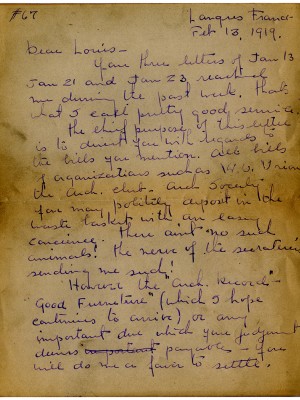 #67
Langres France
Feb 13, 1919.
Dear Louis –
Your three letters of Jan 13
Jan 21 and Jan 23, reached
me during the past week. That
what I call pretty good service.
The chief purpose of this letter
is to direct you with regards to
the bills you mention. All bills
of organizations such as W.U. Union
the Arch. Club. Arch Society
you may politely deposit in the
waste basket with an easy
concience. There aint no such
animals! the nerve of the secretaries
sending me such!
However the "Arch. Record"
"Good Furneture" (which I hope
continues to arrive), or any
important due which your judgment
deems important payable – you
will do me a favor to settle.